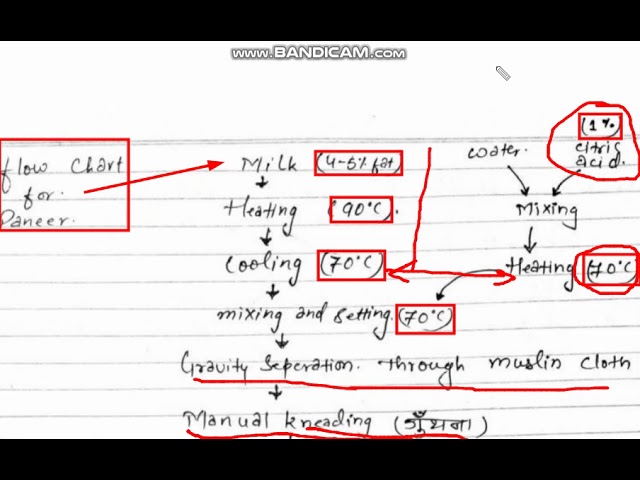 www.BANDICAM.com
flow chart
for.
Paneer.
Milk (4-5% fat)
Heating (90°C).
Cooling (70°C)
mixing and setting. (70°C)
Gravity Seperation. Through muslin cloth
Manual kneading (गुँथना)
(1%)
water. citris
acid.
Mixing
Heating (70°C)